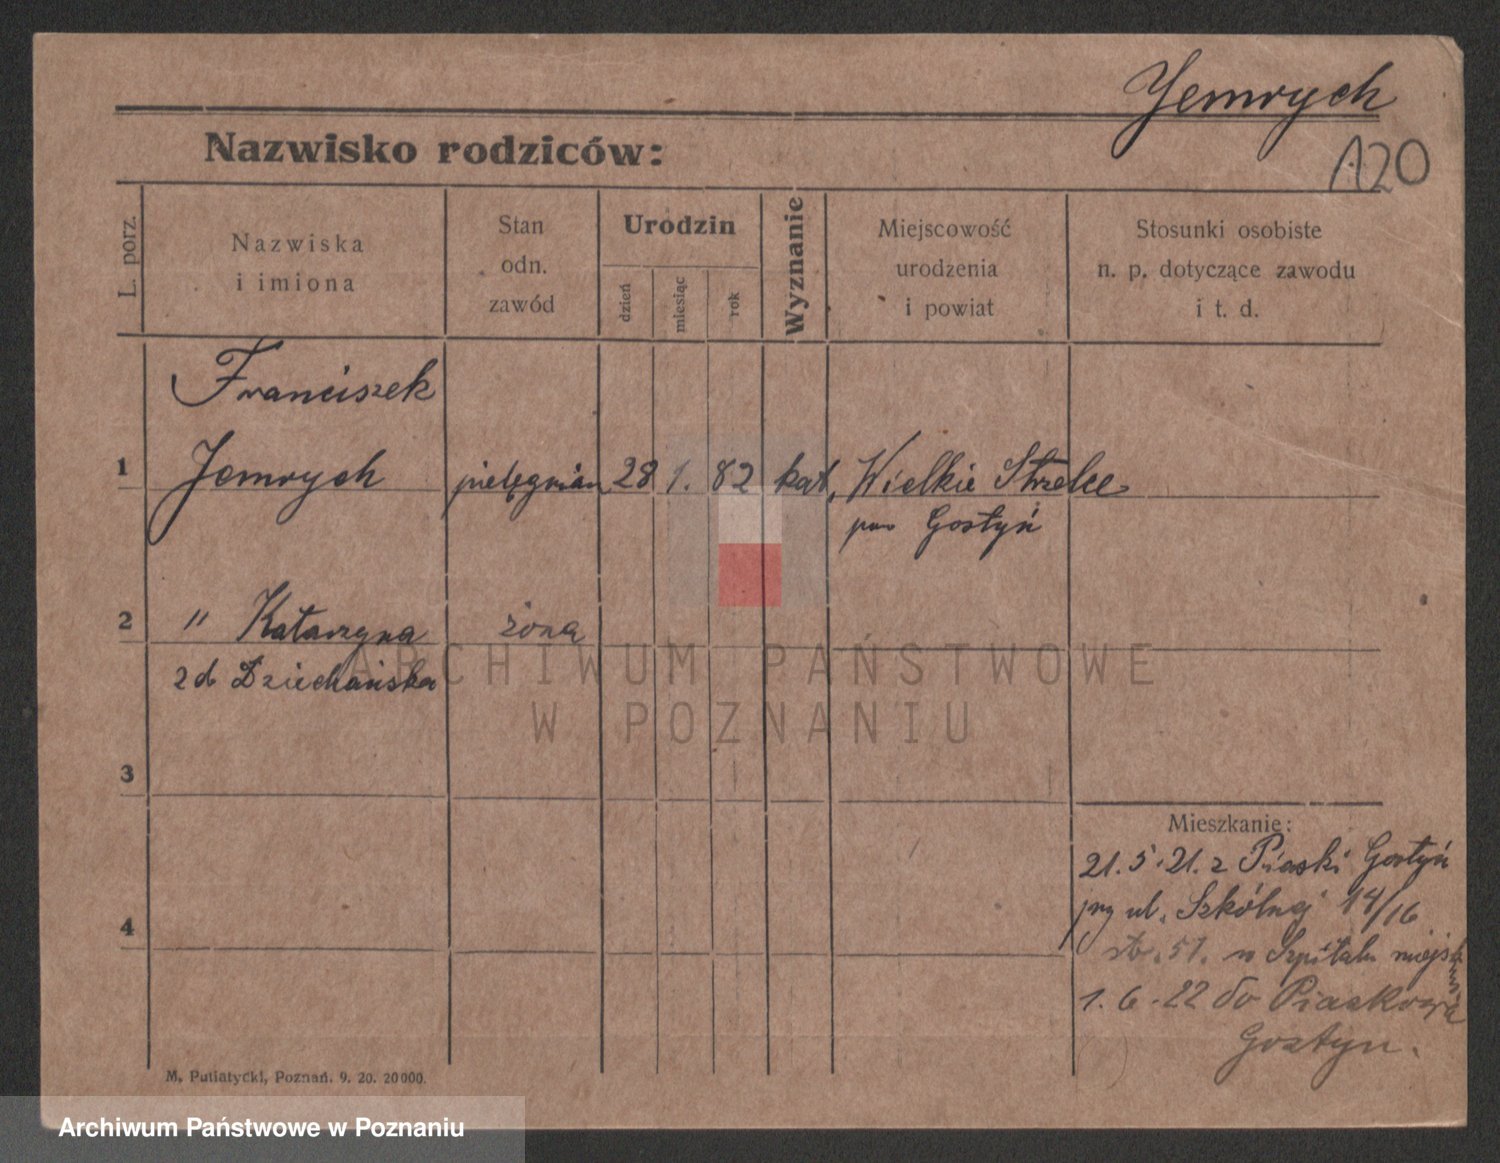 Jemrych
120
Nazwisko rodziców:
L. porz.
Nazwiska
i imiona
Stan
odn.
zawód
Urodzin
dzień
miesiąc
rok
Wyznanie
Miejscowość
urodzenia
i powiat
Stosunki osobiste
n. p. dotyczące zawodu
i t. d.
Franciszek
1 Jemrych pielęgniarz 28 1. 82 kat. Wielkie Strzelce
pow Gostyń
2 " Katarzyna żona
zd Dziechańska
3
4
Mieszkanie:
21.5.21. z Piaski Gostyń
przy ul. Szkólnej 14/16
stb. 51. w Szpitalu miejskim
1.6.22 do
Gostyn.
M. Putiatycki, Poznań. 9. 20. 20000.
ARCHIWUM PAŃSTWOWE
W POZNANIU
Archiwum Państwowe w Poznaniu